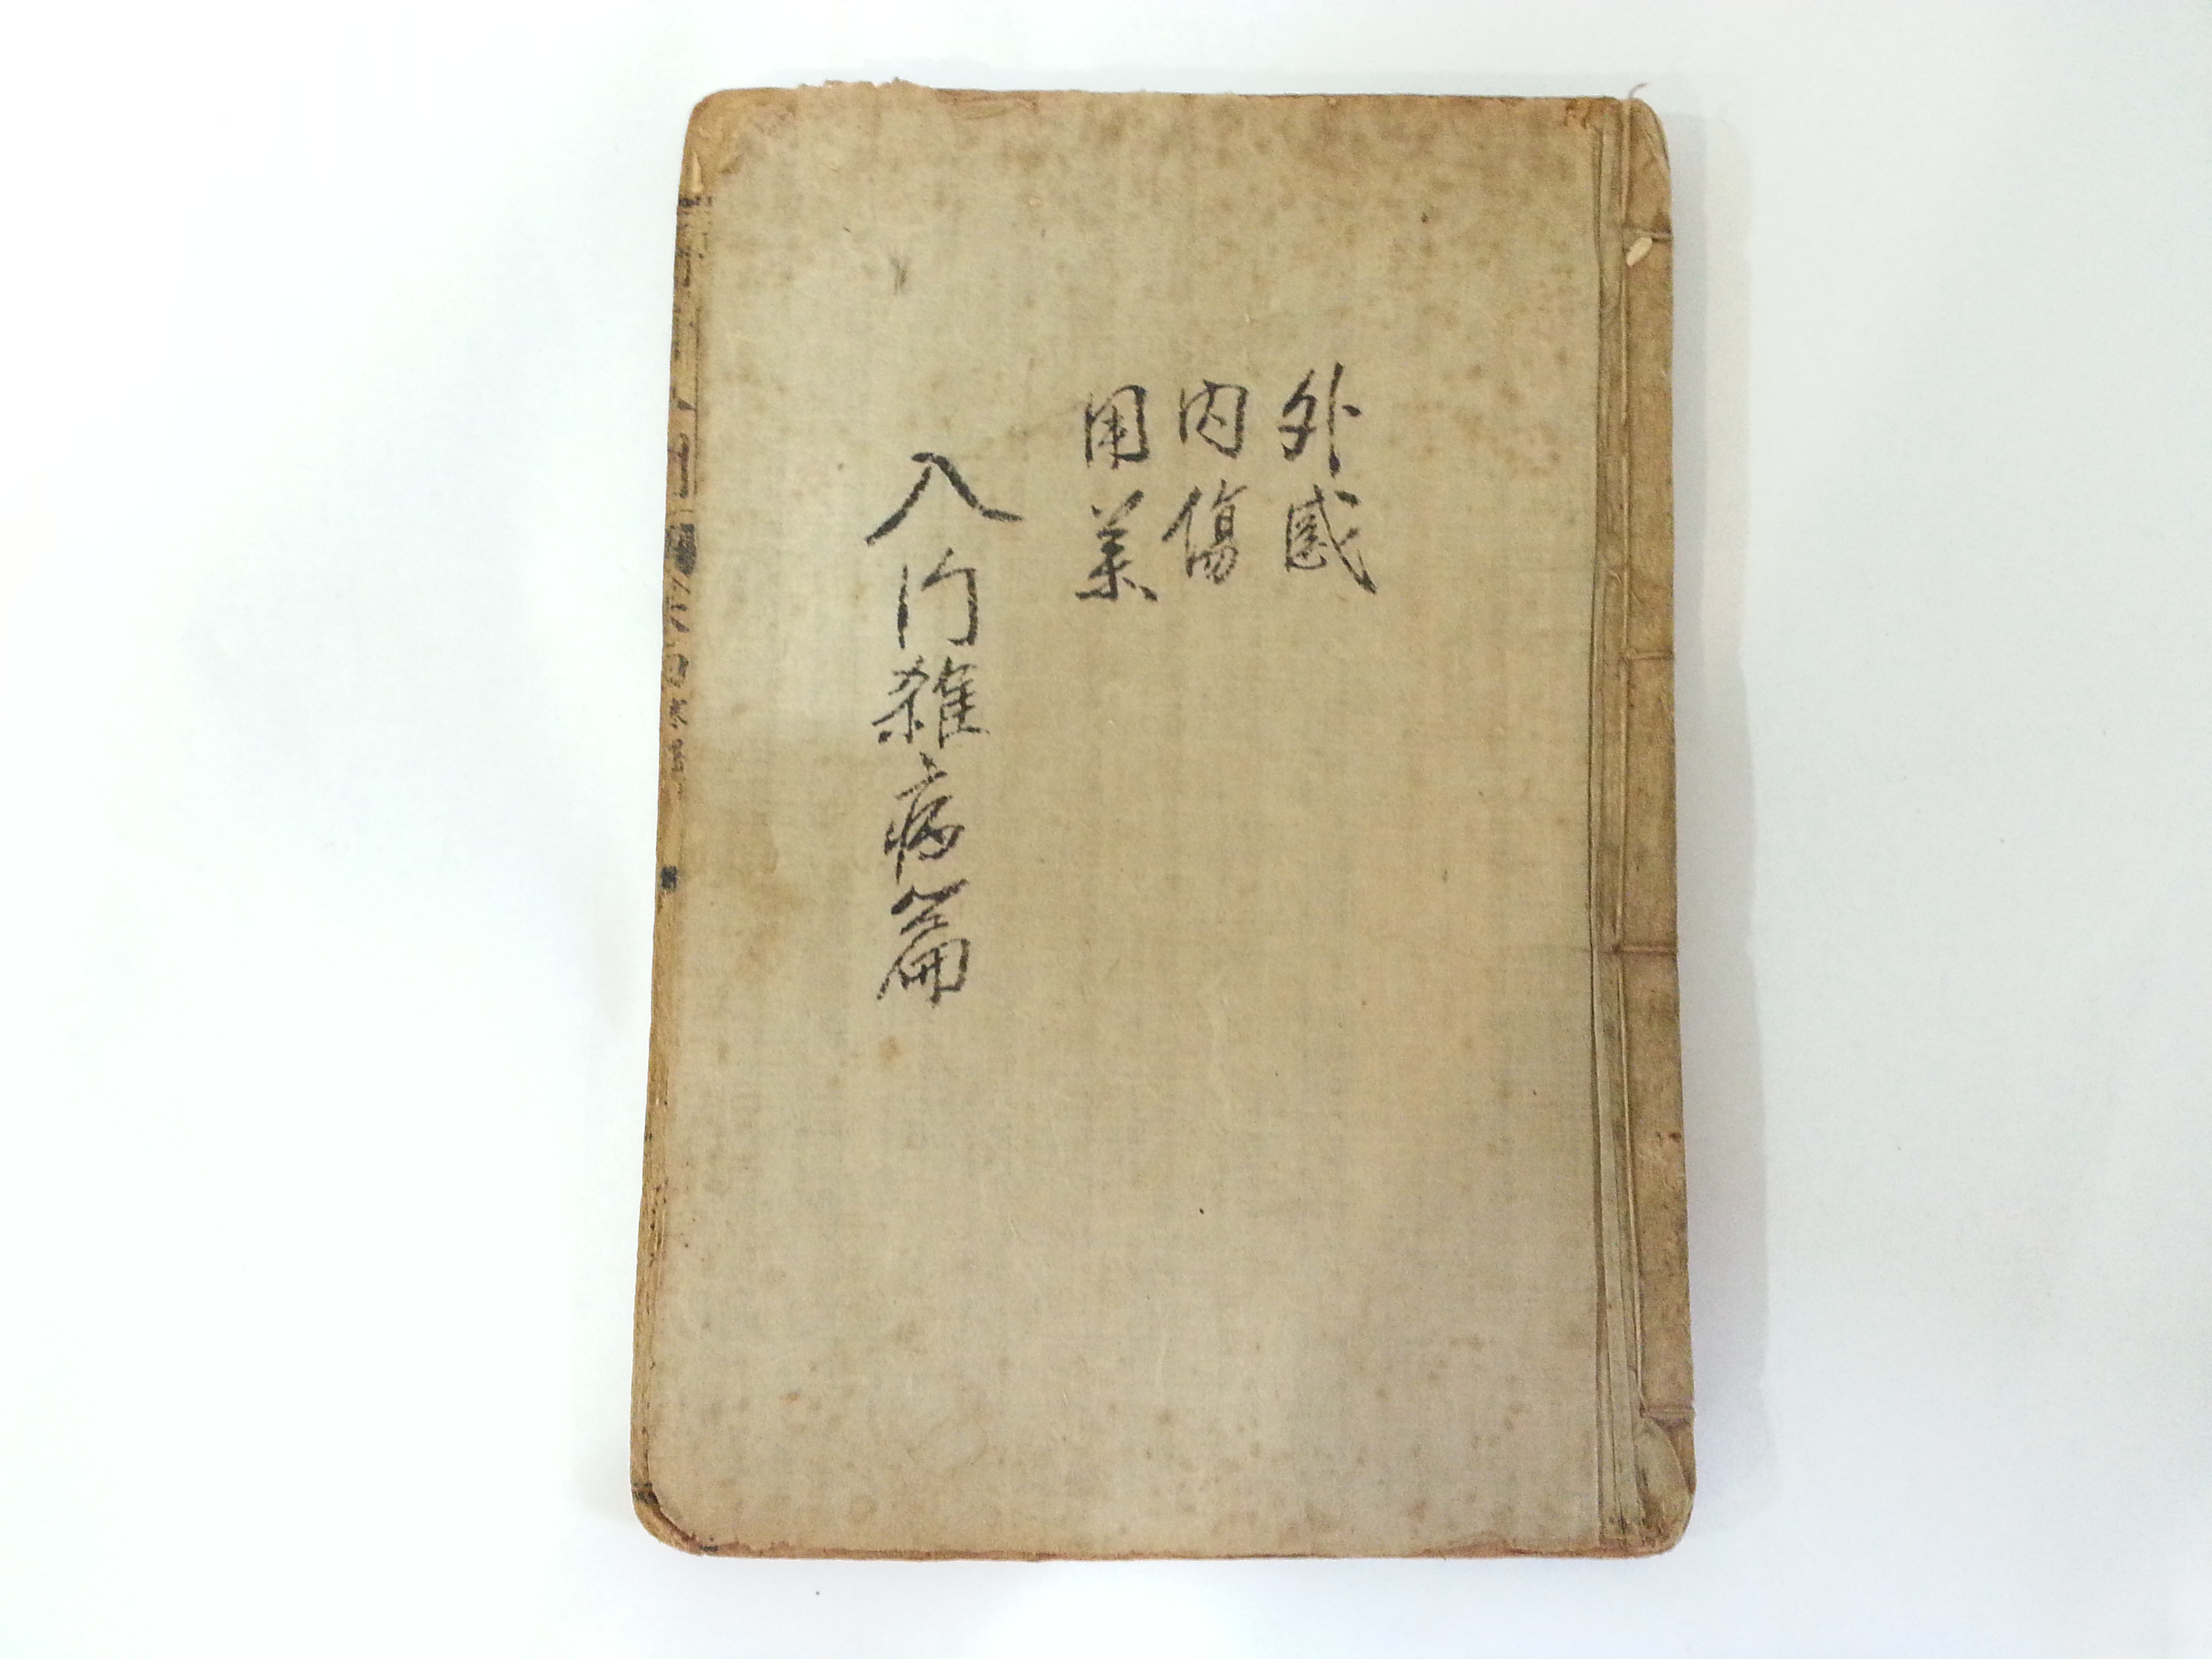 外感
内傷
用藥
入门雜病篇